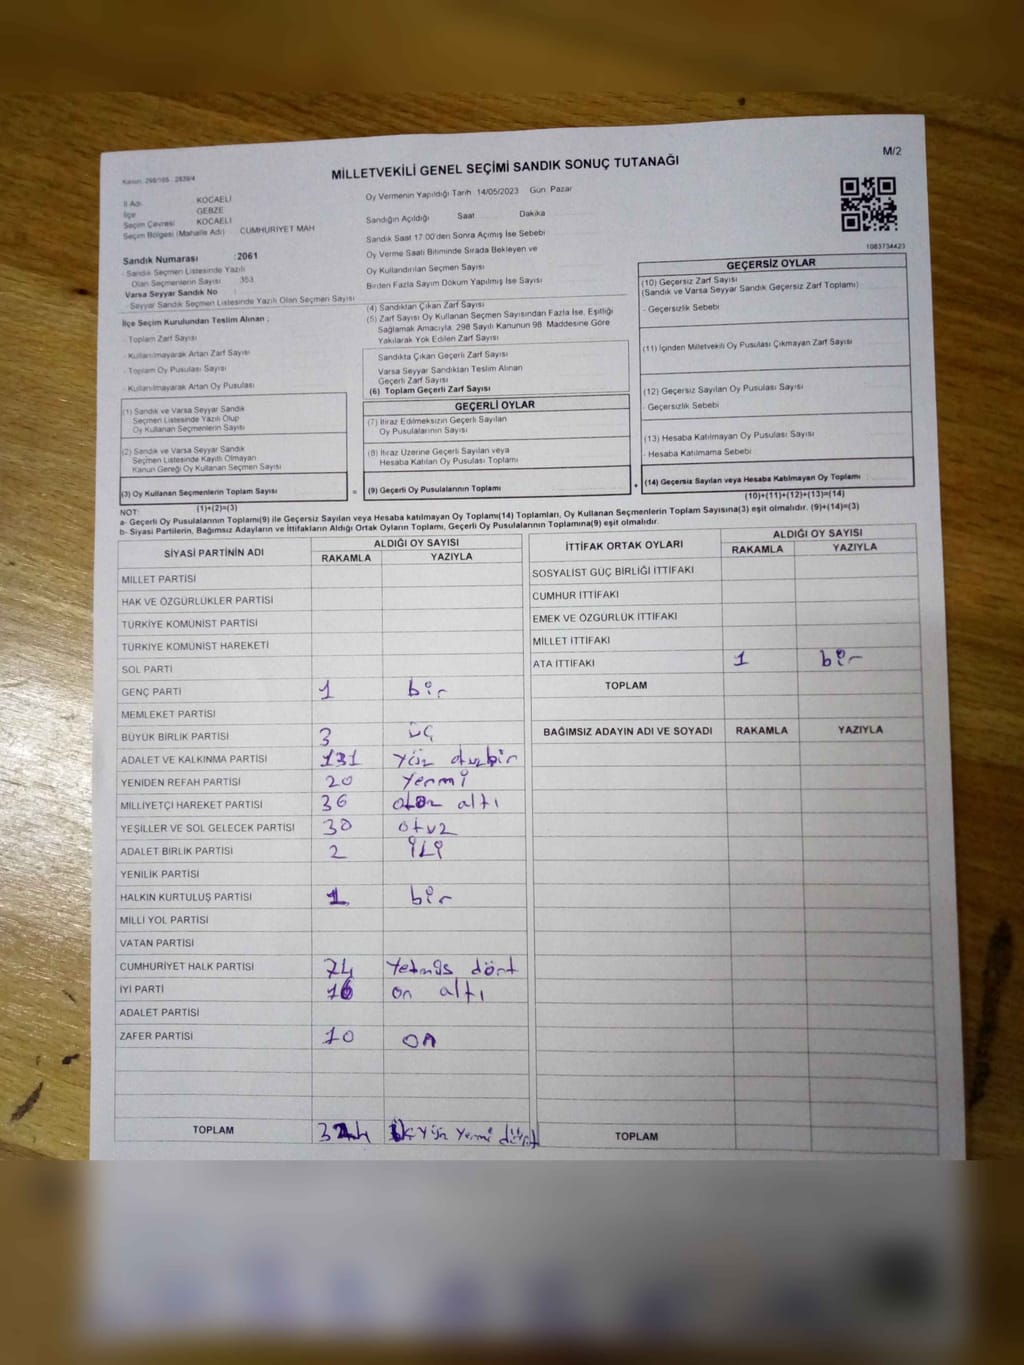 Kanun: 298/105 2839/4
MİLLETVEKİLİ GENEL SEÇİMİ SANDIK SONUÇ TUTANAĞI
M/2
İl Adı KOCAELİ
İlçe GEBZE
Seçim Çevresi KOCAELİ
Seçim Bölgesi (Mahalle Adı) CUMHURİYET MAH
Sandık Numarası :2061
- Sandık Seçmen Listesinde Yazılı
Olan Seçmenlerin Sayısı 353
Varsa Seyyar Sandık No
- Seyyar Sandık Seçmen Listesinde Yazılı Olan Seçmen Sayısı
İlçe Seçim Kurulundan Teslim Alınan ;
- Toplam Zarf Sayısı
- Kullanılmayarak Artan Zarf Sayısı
- Toplam Oy Pusulası Sayısı
- Kullanılmayarak Artan Oy Pusulası
(1) Sandık ve Varsa Seyyar Sandık
Seçmen Listesinde Yazılı Olup
Oy Kullanan Seçmenlerin Sayısı
(2) Sandık ve Varsa Seyyar Sandık
Seçmen Listesinde Kayıtlı Olmayan
Kanun Gereği Oy Kullanan Seçmen Sayısı
(3) Oy Kullanan Seçmenlerin Toplam Sayısı
(1)+(2)=(3)
Oy Vermenin Yapıldığı Tarih 14/05/2023 Gün Pazar
Sandığın Açıldığı Saat Dakika
Sandık Saat 17:00'den Sonra Açımış İse Sebebi
Oy Verme Saati Bitiminde Sırada Bekleyen ve
Oy Kullandırılan Seçmen Sayısı
Birden Fazla Sayım Döküm Yapılmış İse Sayısı
(4) Sandıktan Çıkan Zarf Sayısı
(5) Zarf Sayısı Oy Kullanan Seçmen Sayısından Fazla İse, Eşitliği
Sağlamak Amacıyla, 298 Sayılı Kanunun 98. Maddesine Göre
Yakılarak Yok Edilen Zarf Sayısı
Sandıkta Çıkan Geçerli Zarf Sayısı
Varsa Seyyar Sandıktan Teslim Alınan
Geçerli Zarf Sayısı
(6) Toplam Geçerli Zarf Sayısı
GEÇERLİ OYLAR
(7) İtiraz Edilmeksizin Geçerli Sayılan
Oy Pusulalarının Sayısı
(8) İtiraz Üzerine Geçerli Sayılan veya
Hesaba Katılan Oy Pusulası Toplamı
= (9) Geçerli Oy Pusulalarının Toplamı +
1083734423
GEÇERSİZ OYLAR
(10) Geçersiz Zarf Sayısı
(Sandık ve Varsa Seyyar Sandık Geçersiz Zarf Toplamı)
- Geçersizlik Sebebi
(11) İçinden Milletvekili Oy Pusulası Çıkmayan Zarf Sayısı
(12) Geçersiz Sayılan Oy Pusulası Sayısı
- Geçersizlik Sebebi
(13) Hesaba Katılmayan Oy Pusulası Sayısı
- Hesaba Katılmama Sebebi
(14) Geçersiz Sayılan veya Hesaba Katılmayan Oy Toplamı
(10)+(11)+(12)+(13)=(14)
NOT:
a- Geçerli Oy Pusulasının Toplamı(9) ile Geçersiz Sayılan veya Hesaba katılmayan Oy Toplamı(14) Toplamları, Oy Kullanan Seçmenlerin Toplam Sayısına(3) eşit olmalıdır. (9)+(14)=(3)
b- Siyasi Partilerin, Bağımsız Adayların ve İttifakların Aldığı Ortak Oyların Toplamı, Geçerli Oy Pusulasının Toplamına(9) eşit olmalıdır.
SİYASİ PARTİNİN ADI ALDIĞI OY SAYISI
RAKAMLA YAZIYLA
MİLLET PARTİSİ
HAK VE ÖZGÜRLÜKLER PARTİSİ
TÜRKİYE KOMÜNİST PARTİSİ
TÜRKİYE KOMÜNİST HAREKETİ
SOL PARTİ
GENÇ PARTİ 1 bir
MEMLEKET PARTİSİ
BÜYÜK BİRLİK PARTİSİ 3 üç
ADALET VE KALKINMA PARTİSİ 131 yüz otuzbir
YENİDEN REFAH PARTİSİ 20 yermi
MİLLİYETÇİ HAREKET PARTİSİ 36 altı
YEŞİLLER VE SOL GELECEK PARTİSİ 30 otuz
ADALET BİRLİK PARTİSİ 2 iki
YENİLİK PARTİSİ
HALKIN KURTULUŞ PARTİSİ 1 bir
MİLLİ YOL PARTİSİ
VATAN PARTİSİ
CUMHURİYET HALK PARTİSİ 74 Yetmiş dört
İYİ PARTİ 16 on altı
ADALET PARTİSİ
ZAFER PARTİSİ 10 on
TOPLAM 324 yüz yermi dört
İTTİFAK ORTAK OYLARI ALDIĞI OY SAYISI
RAKAMLA YAZIYLA
SOSYALİST GÜÇ BİRLİĞİ İTTİFAKI
CUMHUR İTTİFAKI
EMEK VE ÖZGÜRLÜK İTTİFAKI
MİLLET İTTİFAKI
ATA İTTİFAKI 1 bir
TOPLAM
BAĞIMSIZ ADAYIN ADI VE SOYADI RAKAMLA YAZIYLA
TOPLAM